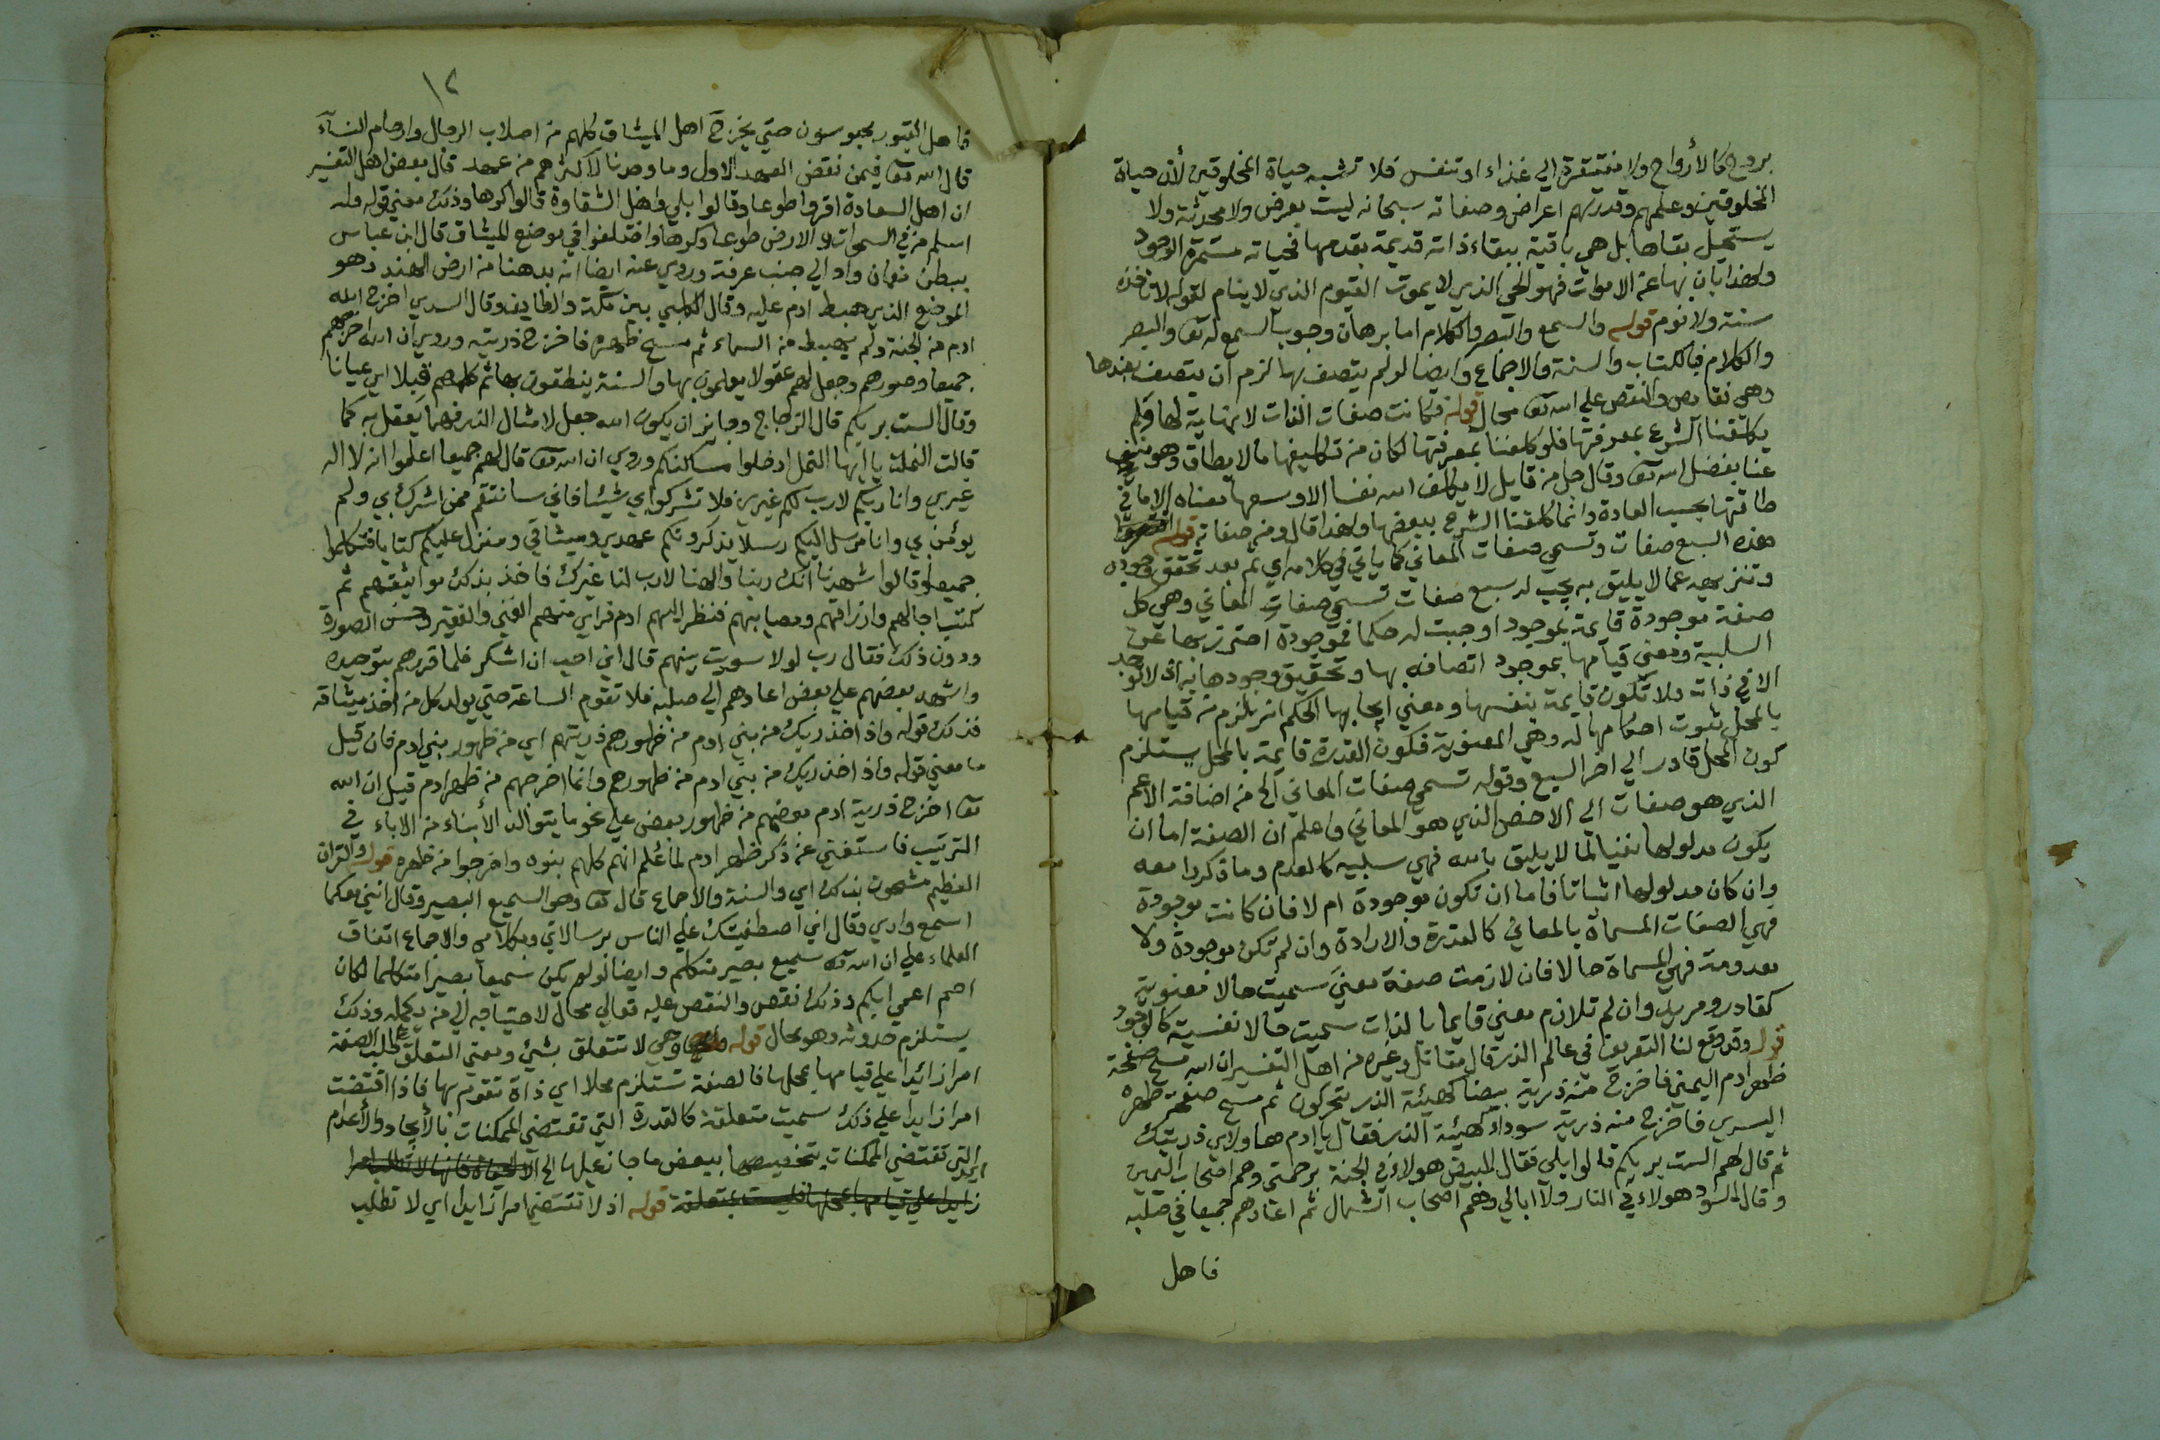 بروح كالأرواح ولا مفتقرة الي غذاء او تنفس فلا تشبه حياة المخلوقين لأن حياة
المخلوقين وعلمهم وقدرتهم اعراض وصفاته سبحانه ليست بعرض ولا محدثة ولا
يستحيل بقاها بل هي باقية ببقاء ذاته قديمة بقدمها فحياته مستمرة الوجود
ولهذا بان بها عن الاموات فهو الحي الذي لا يموت القيوم الذي لا ينام لقوله لا تاخذه
سنة ولا نوم قوله والسمع والبصر والكلام اما برهان وجوب السمع له تعا والبصر
والكلام فالكتاب والسنة والاجماع وايضا لو لم يتصف بها لزم ان يتصف بضدها
وهي نقايص والنقص علي الله تعا محال قوله فكانت صفات الذات لا نهاية لها ولم
يكلفنا الشرع بمعرفتها فلو كلفنا بمعرفتها لكان من تكليفها ما لا يطاق وهو منفي
عنا بفضل الله تعا وقال جل من قايل لا يكلف الله نفسا الا وسعها معناه الا ما في
طاقتها بحسب العادة وانما كلفنا الشرع ببعضها ولهذا قال ومن صفاته قوله
هذه السبع صفات وتسمي صفات المعاني كما ياتي في كلامه اي ثم بعد تحقق وجوده
وتنزيهه عما لا يليق به يجب له سبع صفات تسمي صفات المعاني وهي كل
صفة موجودة قايمة بموجود اوجبت له حكما فموجودة احترز بها عن
السلبية ومعني قيامها بموجود اتصافه بها وتحقيق وجودها به اي لا توجد
الا في ذاته ولا تكون قايمة بنفسها ومعني ايجابها الحكم انه يلزم من قيامها
بالمحل ثبوت احكامها له وهي المعنوية فكون القدرة قايمة بالمحل يستلزم
كون المحل قادر الي اخر السبع وقوله تسمي صفات المعاني الخ من اضافة الاعم
الذي هو صفات الي الاخص الذي هو المعاني واعلم ان الصفة اما ان
يكون مدلولها نفيا لما لا يليق بالله فهي سلبية كالقدم وما ذكروا معه
وان كان مدلولها اثباتا فاما ان تكون موجودة ام لا فان كانت موجودة
فهي الصفات المسماة بالمعاني كالقدرة والارادة وان لم تكن موجودة ولا
معدومة فهي المسماة حالا فان لازمت صفة معني سميت حالا معنوية
كقادر ومريد وان لم تلازم معني قايما بالذات سميت حالا نفسية كالوجود
قوله وقد وقع لنا التعريف في عالم الذر قال مقاتل وغيره من اهل التفسير ان الله مسح صفحة
ظهر ادم اليمني فاخرج منه ذرية بيضا كهيئة الذر يتحركون ثم مسح صفحة ظهره
اليسري فاخرج منه ذرية سوداء كهيئة الذر فقال يا ادم هولاي ذريتك
ثم قال لهم الست بربكم قالوا بلي فقال للبيض هولاء في الجنة برحمتي وهم اصحاب اليمين
وقال للسود هولاء في النار ولا ابالي وهم اصحاب الشمال ثم اعادهم جميعا في صلبه
فاهل
١٢
فاهل القبور محبوسون حتي يخرج اهل الميثاق كلهم من اصلاب الرجال وارحام النسآء
قال الله تعا فيمن نقض العهد الاول وما وجدنا لاكثرهم من عهد قال بعض اهل التفسير
ان اهل السعادة اقروا طوعا وقالوا بلي واهل الشقاوة قالوا كرها وذلك معني قوله وله
اسلم من في السموات والارض طوعا وكرها واختلفوا في موضع الميثاق قال ابن عباس
ببطن نعمان واد الي جنب عرفة وروي عنه ايضا انه بدهنا من ارض الهند وهو
الموضع الذي هبط ادم عليه وقال الكلبي بين مكة والطايف وقال السدي اخرج الله
ادم من الجنة ولم يهبط من السماء ثم مسح ظهره فاخرج ذريته وروي ان الله اخرجهم
جميعا وصورهم وجعل لهم عقولا يعلمون بها والسنة ينطقون بها ثم كلمهم قبلا اي عيانا
وقال الست بربكم قال الزجاج وجايز ان يكون الله جعل لامثال الذر فهما يعقل به كما
قالت النملة يا ايها النمل ادخلوا مساكنكم وروي ان الله تعا قال لهم جميعا اعلموا انه لا اله
غيري وانا ربكم لا رب لكم غيري فلا تشركوا بي شيئا فاني سانتقم ممن اشرك بي ولم
يومن بي وانا مرسل اليكم رسلا يذكرونكم عهدي وميثاقي ومنزل عليكم كتابا فتكلموا
جميعا وقالوا شهدنا انك ربنا والهنا لا رب لنا غيرك فاخذ بذلك مواثيقهم ثم
كتب اجالهم وارزاقهم ومصايبهم فنظر اليهم ادم فراي منهم الغني والفقير وحسن الصورة
ودون ذلك فقال رب لولا سويت بينهم قال اني احب ان اشكر فلما قررهم بتوحيده
واشهد بعضهم علي بعض اعادهم الي صلبه فلا تقوم الساعة حتي يولد كل من اخذ ميثاقه
فذلك قوله واذ اخذ ربك من بني ادم من ظهورهم ذريتهم اي من ظهور بني ادم فان قيل
ما معني قوله واذ اخذ ربك من بني ادم من ظهورهم وانما اخرجهم من ظهر ادم قيل ان الله
تعا اخرج ذرية ادم بعضهم من ظهور بعض علي نحو ما يتوالد الأبناء من الاباء في
الترتيب فاستغني عن ذكر ظهر ادم لما علم انهم كلهم بنوه واخرجوا من ظهره قوله والقران
العظيم مشحون بذلك اي والسنة والاجماع قال تعا وهو السميع البصير وقال انني معكما
اسمع واري وقال اني اصطفيتك علي الناس برسالاتي وبكلامي والاجماع اتفاق
العلماء علي ان الله تعا سميع بصير متكلم وايضا لو لم يكن سميعا بصيرا متكلما لكان
اصم اعمي ابكم وذلك نقص والنقص عليه تعالي محال لاحتياجه الي من يكمله وذلك
يستلزم حدوثه وهو محال قوله وهي لا تتعلق بشئ ومعني التعلق طلب الصفة
امرا زائدا علي قيامها بمحلها فالصفة تستلزم محلا اي ذاة تقوم بها فاذا اقتضت
امرا زايدا علي ذلك سميت متعلقة كالقدرة التي تقتضي الممكنات بالأيجاد والأعدام
التي تقتضي الممكنات تخصيصها ببعض ما جاز عليها الخ الا الحياة فانها لا تطلب امرا
زايدا علي قيامها بمحلها فليست بمتعلقة قوله اذ لا تقتضي امرا زايدا اي لا تطلب